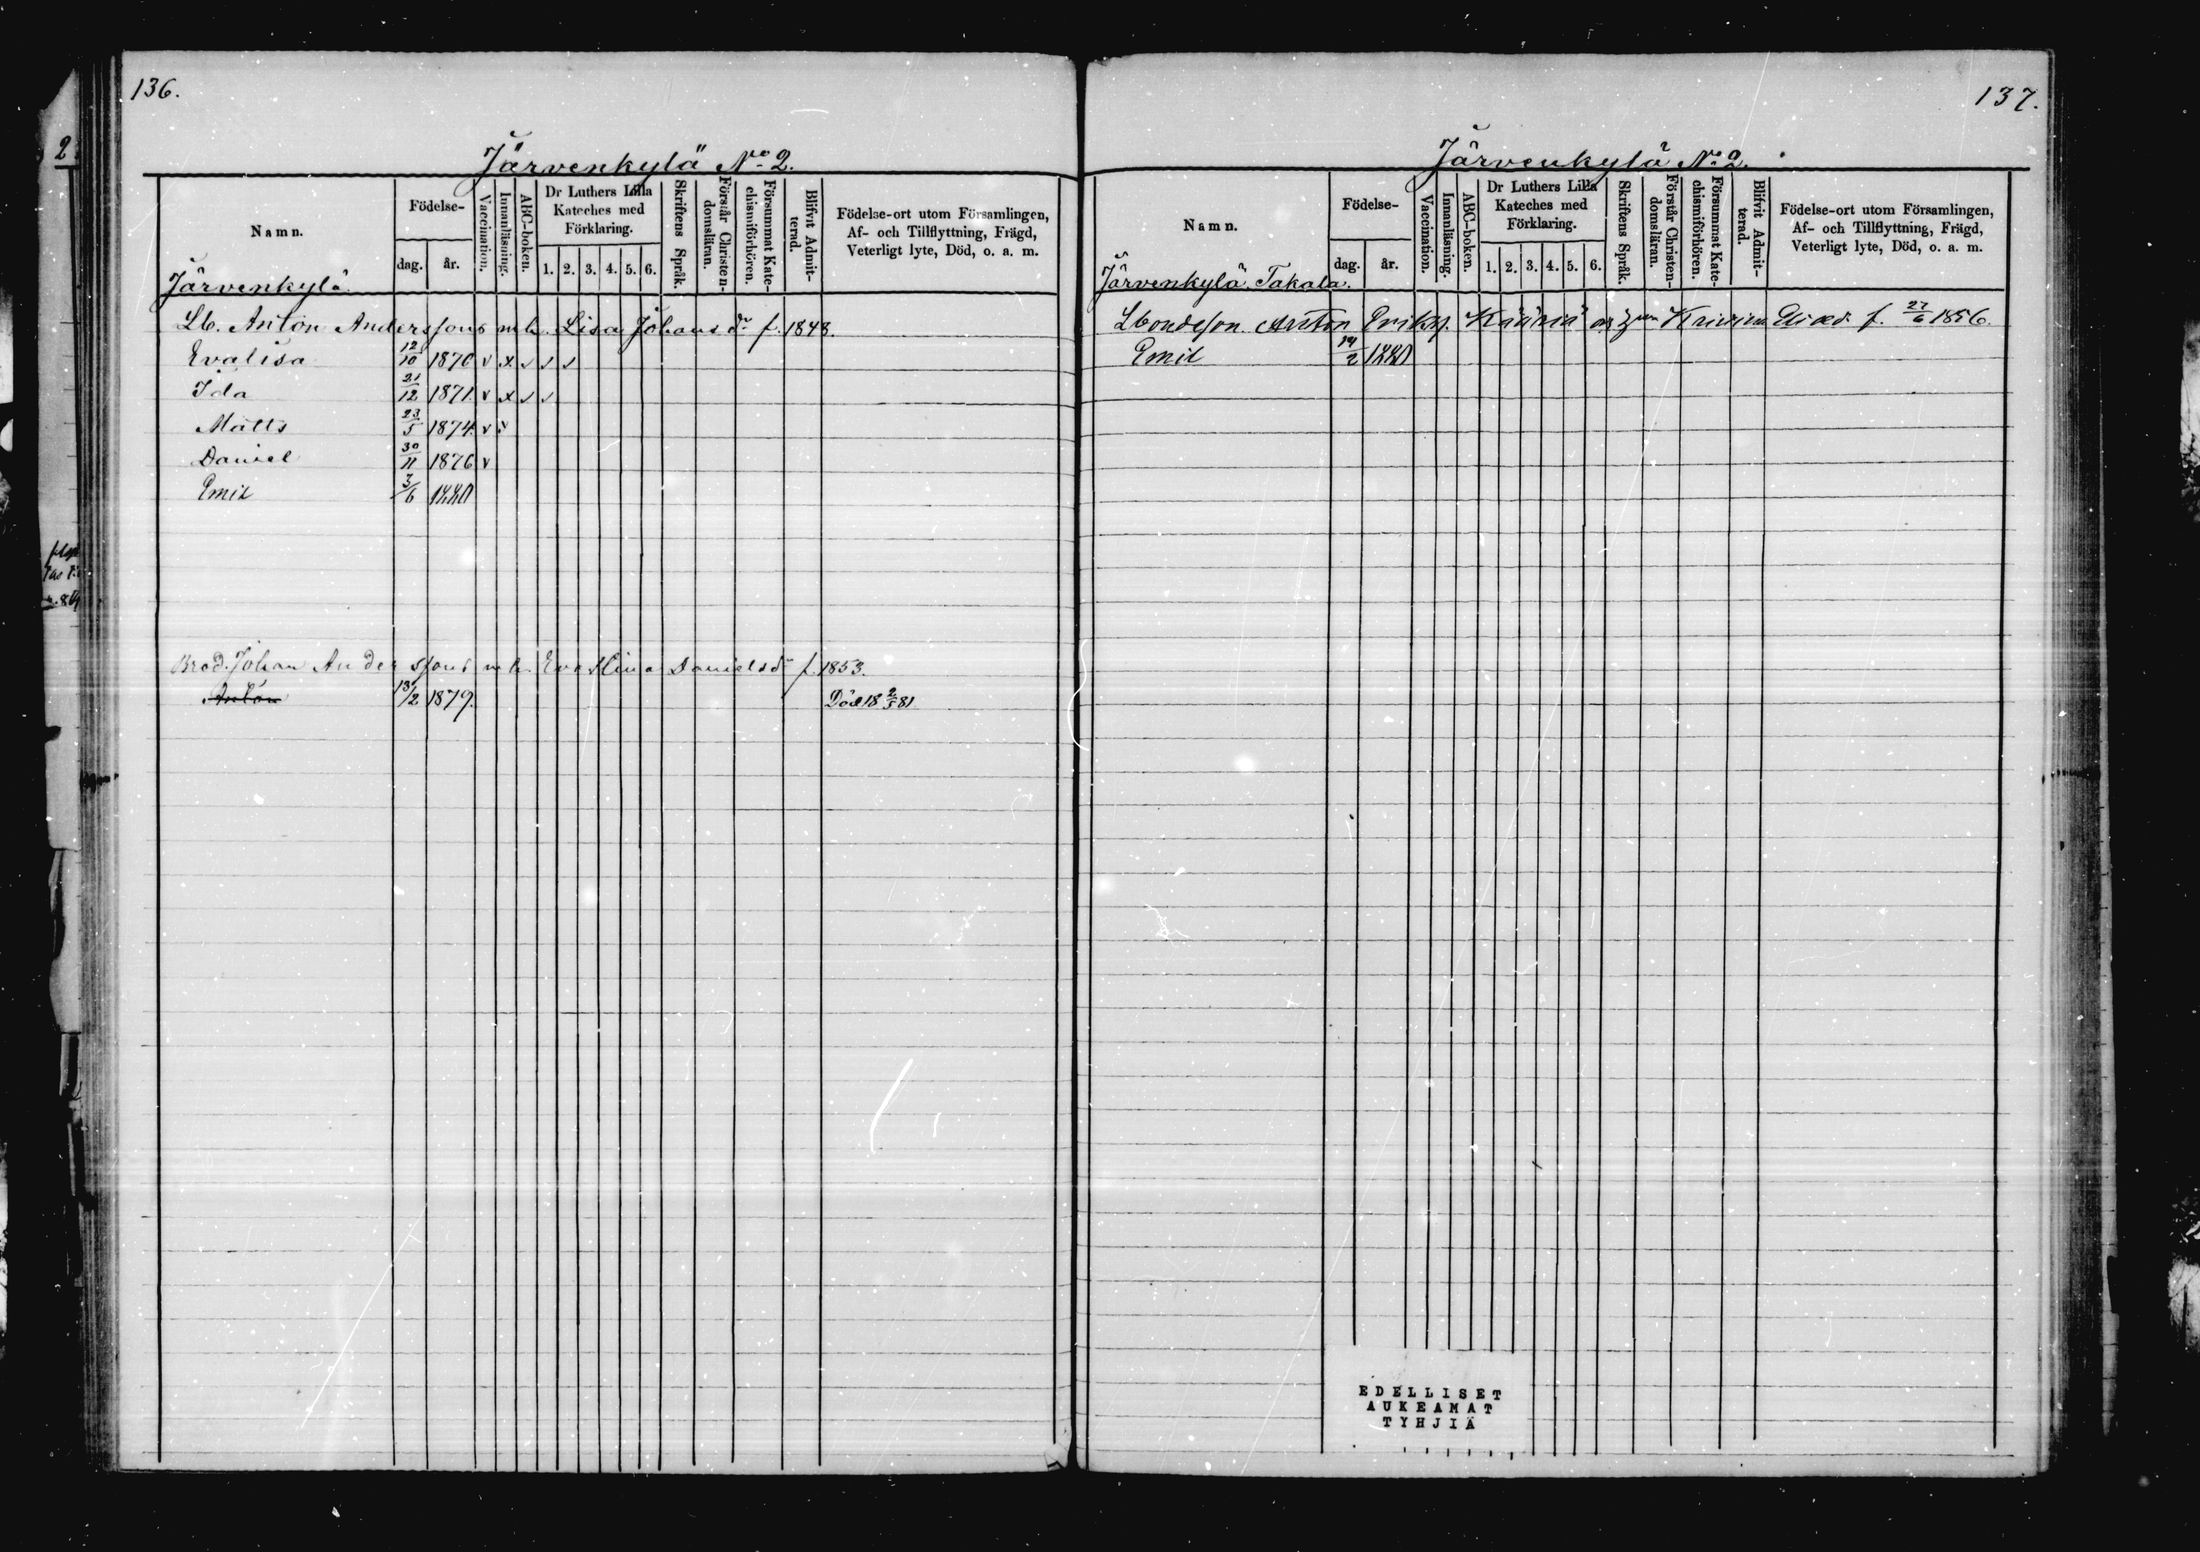 136.
Järvenkylä No 2.
Namn.
Födelse-
dag.
år.
Vaccination.
Innanläsning.
ABC-boken.
Dr Luthers Lilla
Kateches med
Förklaring.
1. 2. 3. 4. 5. 6.
Skriftens Språk.
Förstår Christen-
domsläran.
Försummat Kate-
chismiförhören.
Blifvit Admit-
terad.
Födelse-ort utom Församlingen,
Af- och Tillflyttning, Frägd,
Veterligt lyte, Död, o. a. m.
Järvenkylä
Lb. Anton Anderssons m h. Lisa Johans dr f. 1848.
Evalisa 12/10 1870 v x v v v
Ida 21/12 1871 v x v v
Matts 23/5 1874 v v
Daniel 30/11 1876 v
Emil 3/6 1880
Brod. Johan Anderssons m h. Eva Stina Daniels dr f. 1853.
Anton 13/2 1879. Död 18 2/5 81
137.
Järvenkylä No 2.
Namn.
Födelse-
dag.
år.
Vaccination.
Innanläsning.
ABC-boken.
Dr Luthers Lilla
Kateches med
Förklaring.
1. 2. 3. 4. 5. 6.
Skriftens Språk.
Förstår Christen-
domsläran.
Försummat Kate-
chismiförhören.
Blifvit Admit-
terad.
Födelse-ort utom Församlingen,
Af- och Tillflyttning, Frägd,
Veterligt lyte, Död, o. a. m.
Järvenkylä. Takala.
Anton f. 27/6 1856.
Emil 14/2 1880
EDELLISET
AUKEAMAT
TYHJIÄ
2